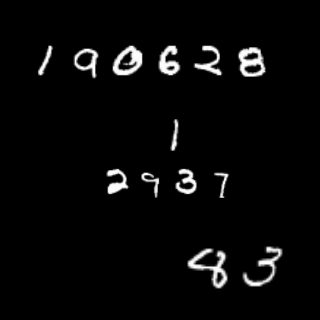 190628
1
2937
83